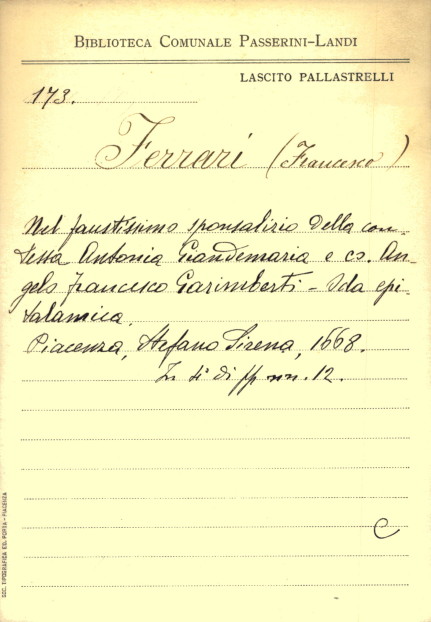 BIBLIOTECA COMUNALE PASSERINI-LANDI
LASCITO PALLASTRELLI
173.
Ferrari (Francesco)
Nel faustissimo sponsalizio della con-
tessa Antonia Gandemaria e co. An-
gelo Francesco Garimberti - Oda epi-
talamica.
Piacenza, Stefano Sirena, 1668.
In 4° di pp nn. 12.
C
SOC. TIPOGRAFICA ED. PORTA - PIACENZA